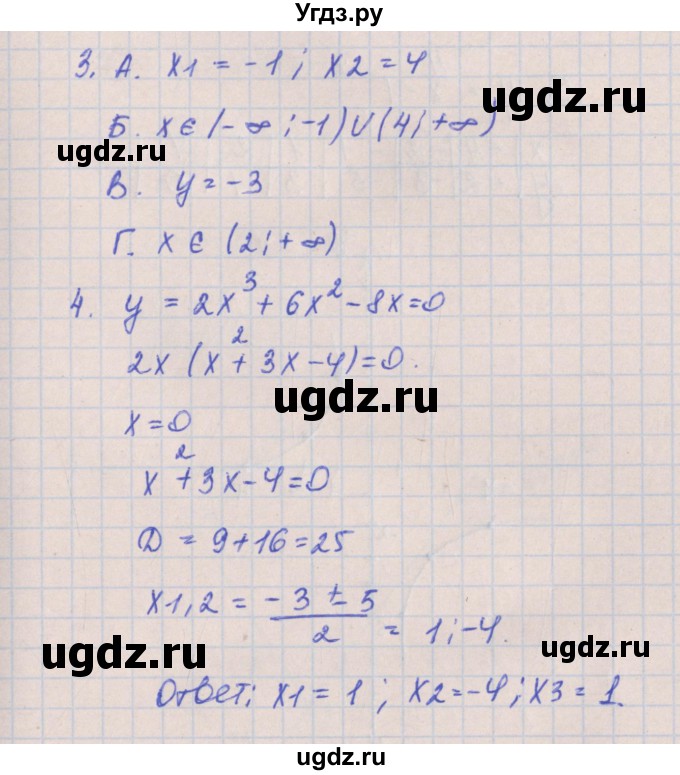 Угдз.ру
3. А. x1 = -1 ; x2 = 4
ugdz.ru
Б. x ∈ (-∞ ; -1) ∪ (4 ; +∞)
ugdz.ru
В. y = -3
Г. x ∈ (2 ; +∞)
4. y = 2x³ + 6x² - 8x = 0
2x (x² + 3x - 4) = 0.
ugdz.ru
x = 0
ugdz.ru
x² + 3x - 4 = 0
D = 9 + 16 = 25
x1,2 = (-3 ± 5)/2 = 1 ; -4.
ugdz.ru
ugdz.ru
Ответ: x1 = 1 ; x2 = -4 ; x3 = 1.
ugdz.ru